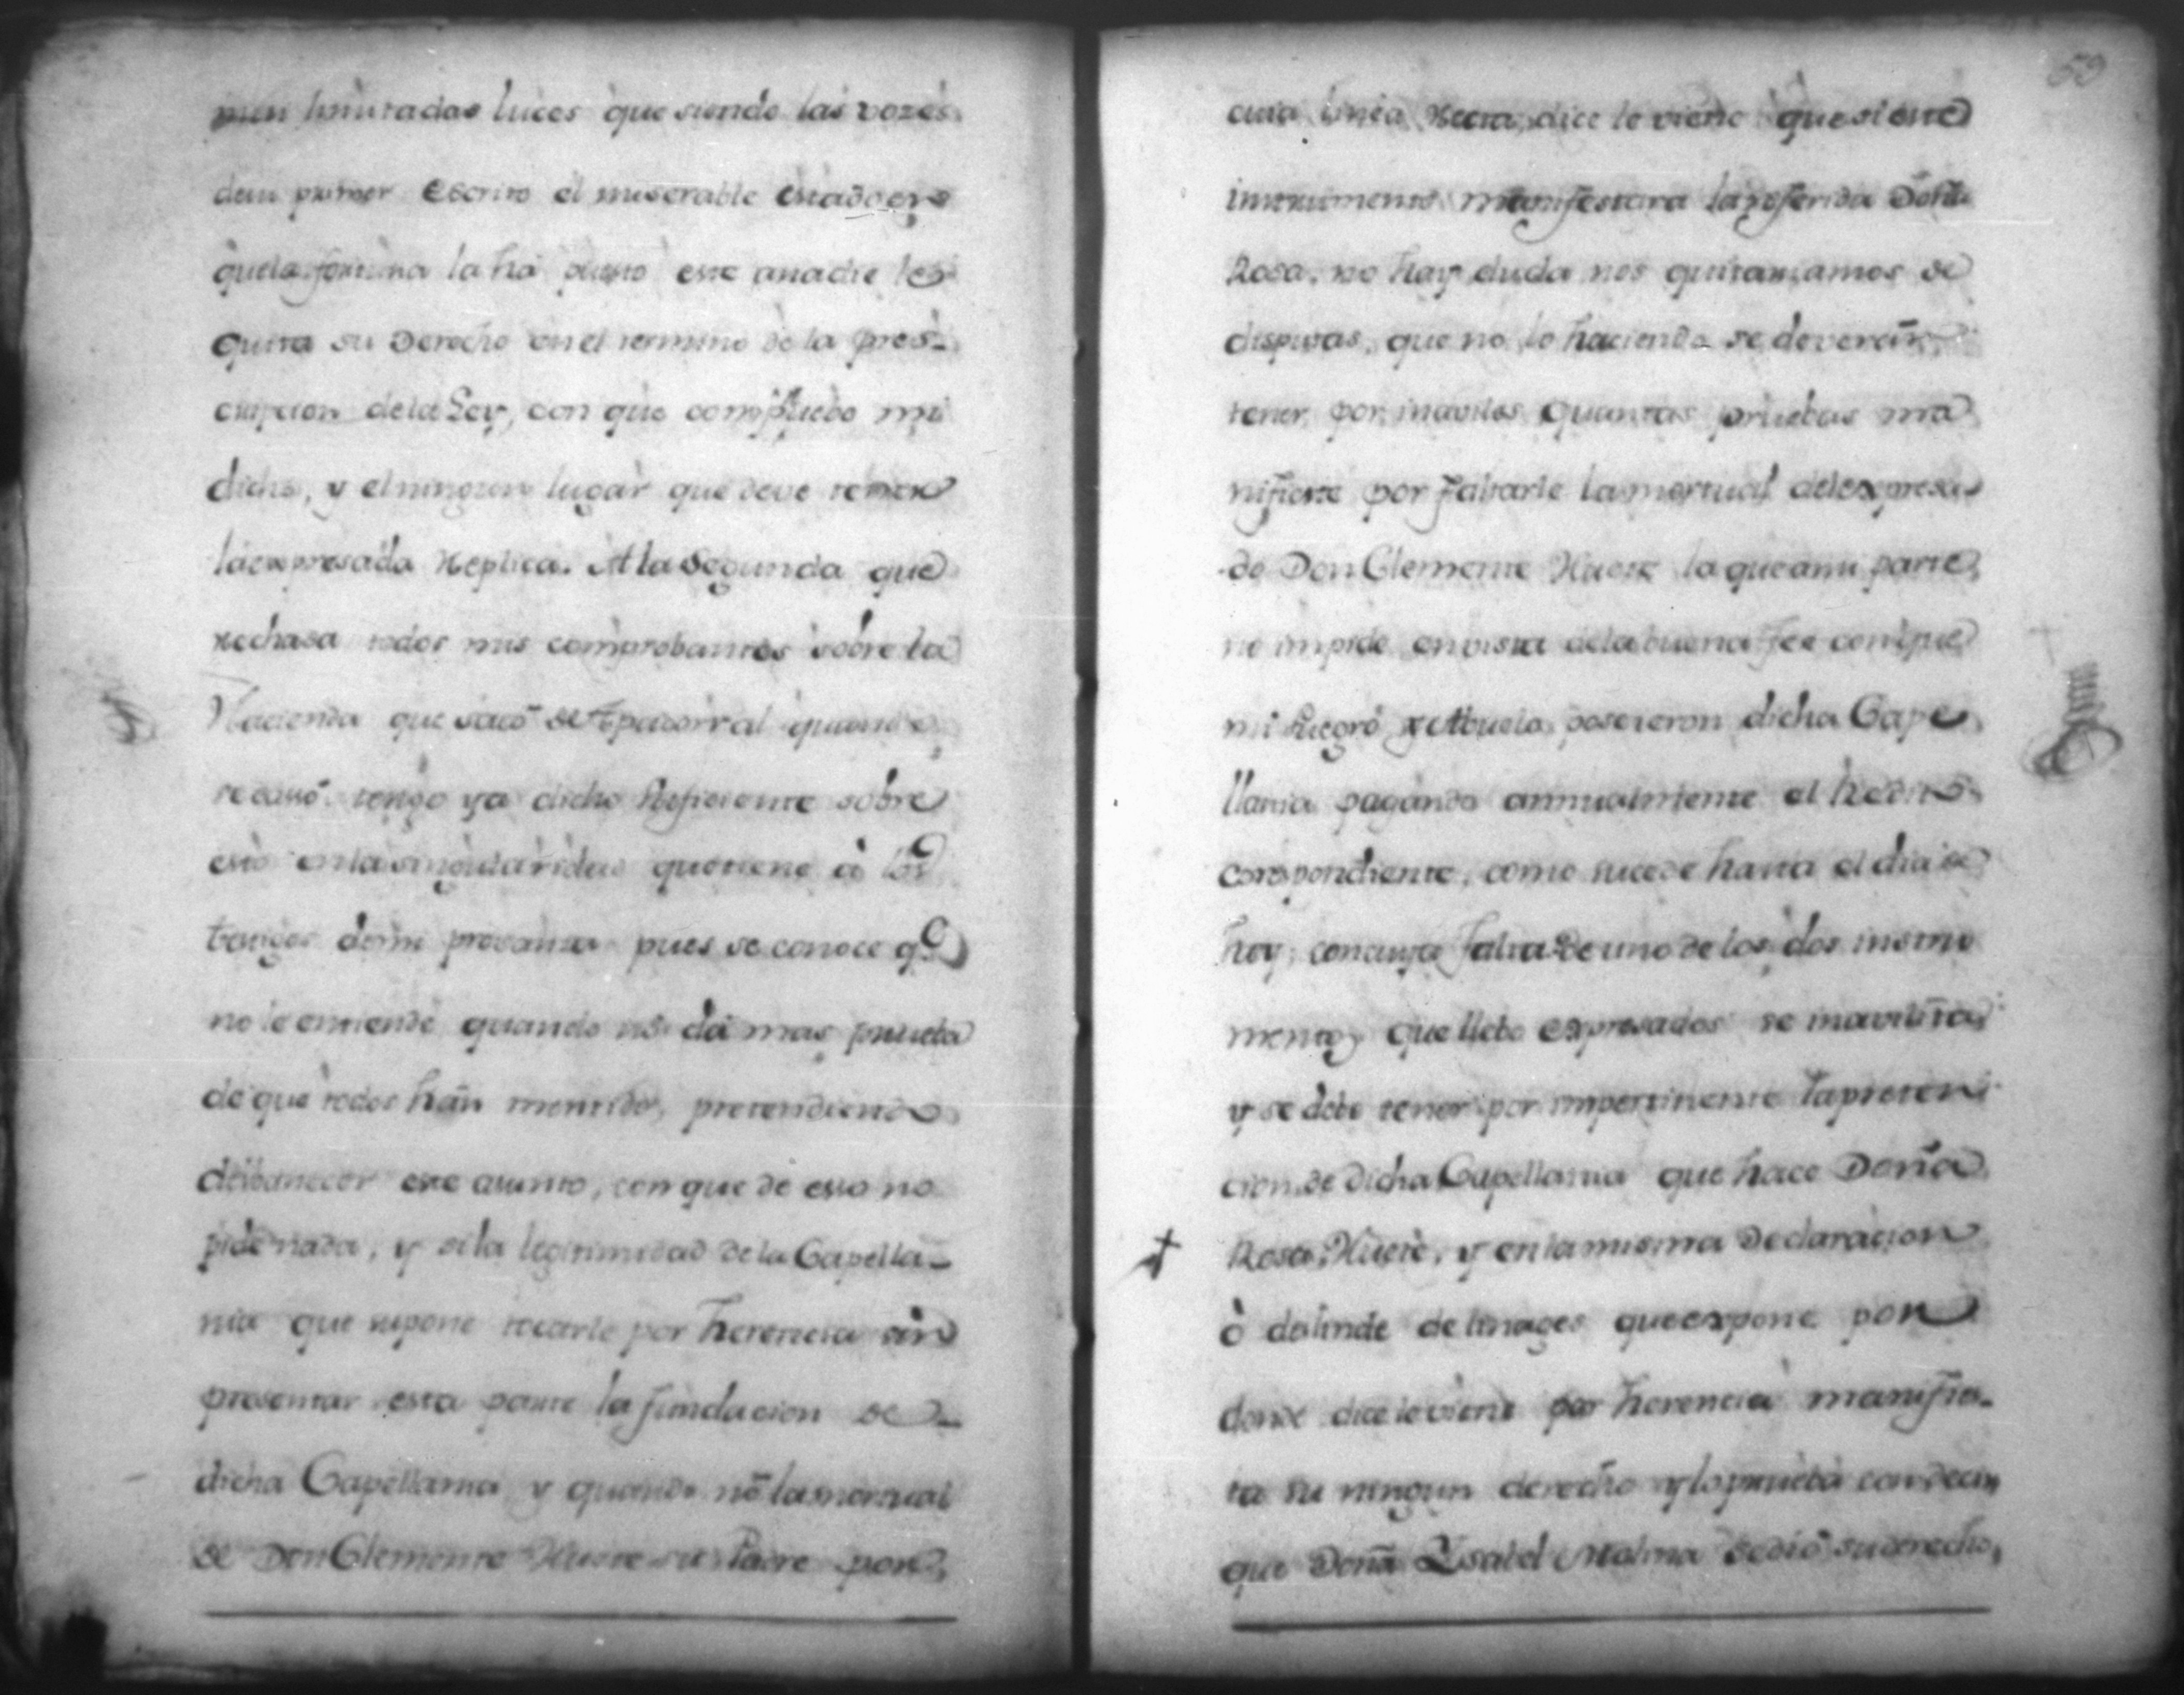 mui limitadas luces que siendo las vozes
de su primer Escrito el miserable estado en
que la fortuna la há puesto este a nadie le
quita su Derecho en el termino de la pres-
cripcion de la Ley, con que compruebo mi
dicho, y el ningun lugar que deve tener
la expresada Replica. A la Segunda que
rechasa todos mis comprobantes sobre la
Hacienda que sacó de quando
se casó tengo ya dicho suficiente sobre
esto en la singularidad que tiene à los
testigos de mi provanza pues se conoce qe
no lo entiende quando nos dá mas prueba
de que todos hán mentido, pretendiendo
desbanecer este asunto, con que de esso no
pide nada, y si la legitimidad de la Capella-
nia que supone tocarle por herencia sin
presentar esta parte la fundacion de
dicha Capellania y quando nó la mortual
de Don Clemente Huete su Padre por
59
cuia linea Recta, dice le viene que si este
instrumento manifestara la referida Doña
Rosa, no hay duda nos quitariamos de
disputas, que no lo haciendo se deveràn
tener por inaviles quantas pruebas ma
nifieste por faltarle la mortual del expresa
do Don Clemente Huete la que a mi parte
no impide en vista de la buena fee con que
mi Suegro y Abuelo poseieron dicha Cape
llania pagando annualmente el Redito
correspondiente, como sucede hasta el dia de
hoy, con cuya falta de uno de los dos instru
mentos que llebo expresados se inavilita
y se debe tener por impertinente la preten
cion de dicha Capellania que hace Doña
Rosa Huete, y en la misma Declaracion
ò deslinde de linages que expone por
donde dice le viene por herencia manifies-
ta su ningun derecho y lo prueba con decir
que Doña Ysabel Molina cedió su derecho,